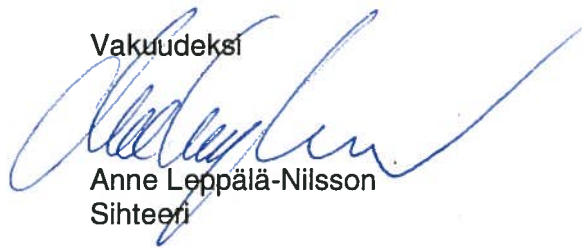 Vakuudeksi
Anne Leppälä-Nilsson
Sihteeri